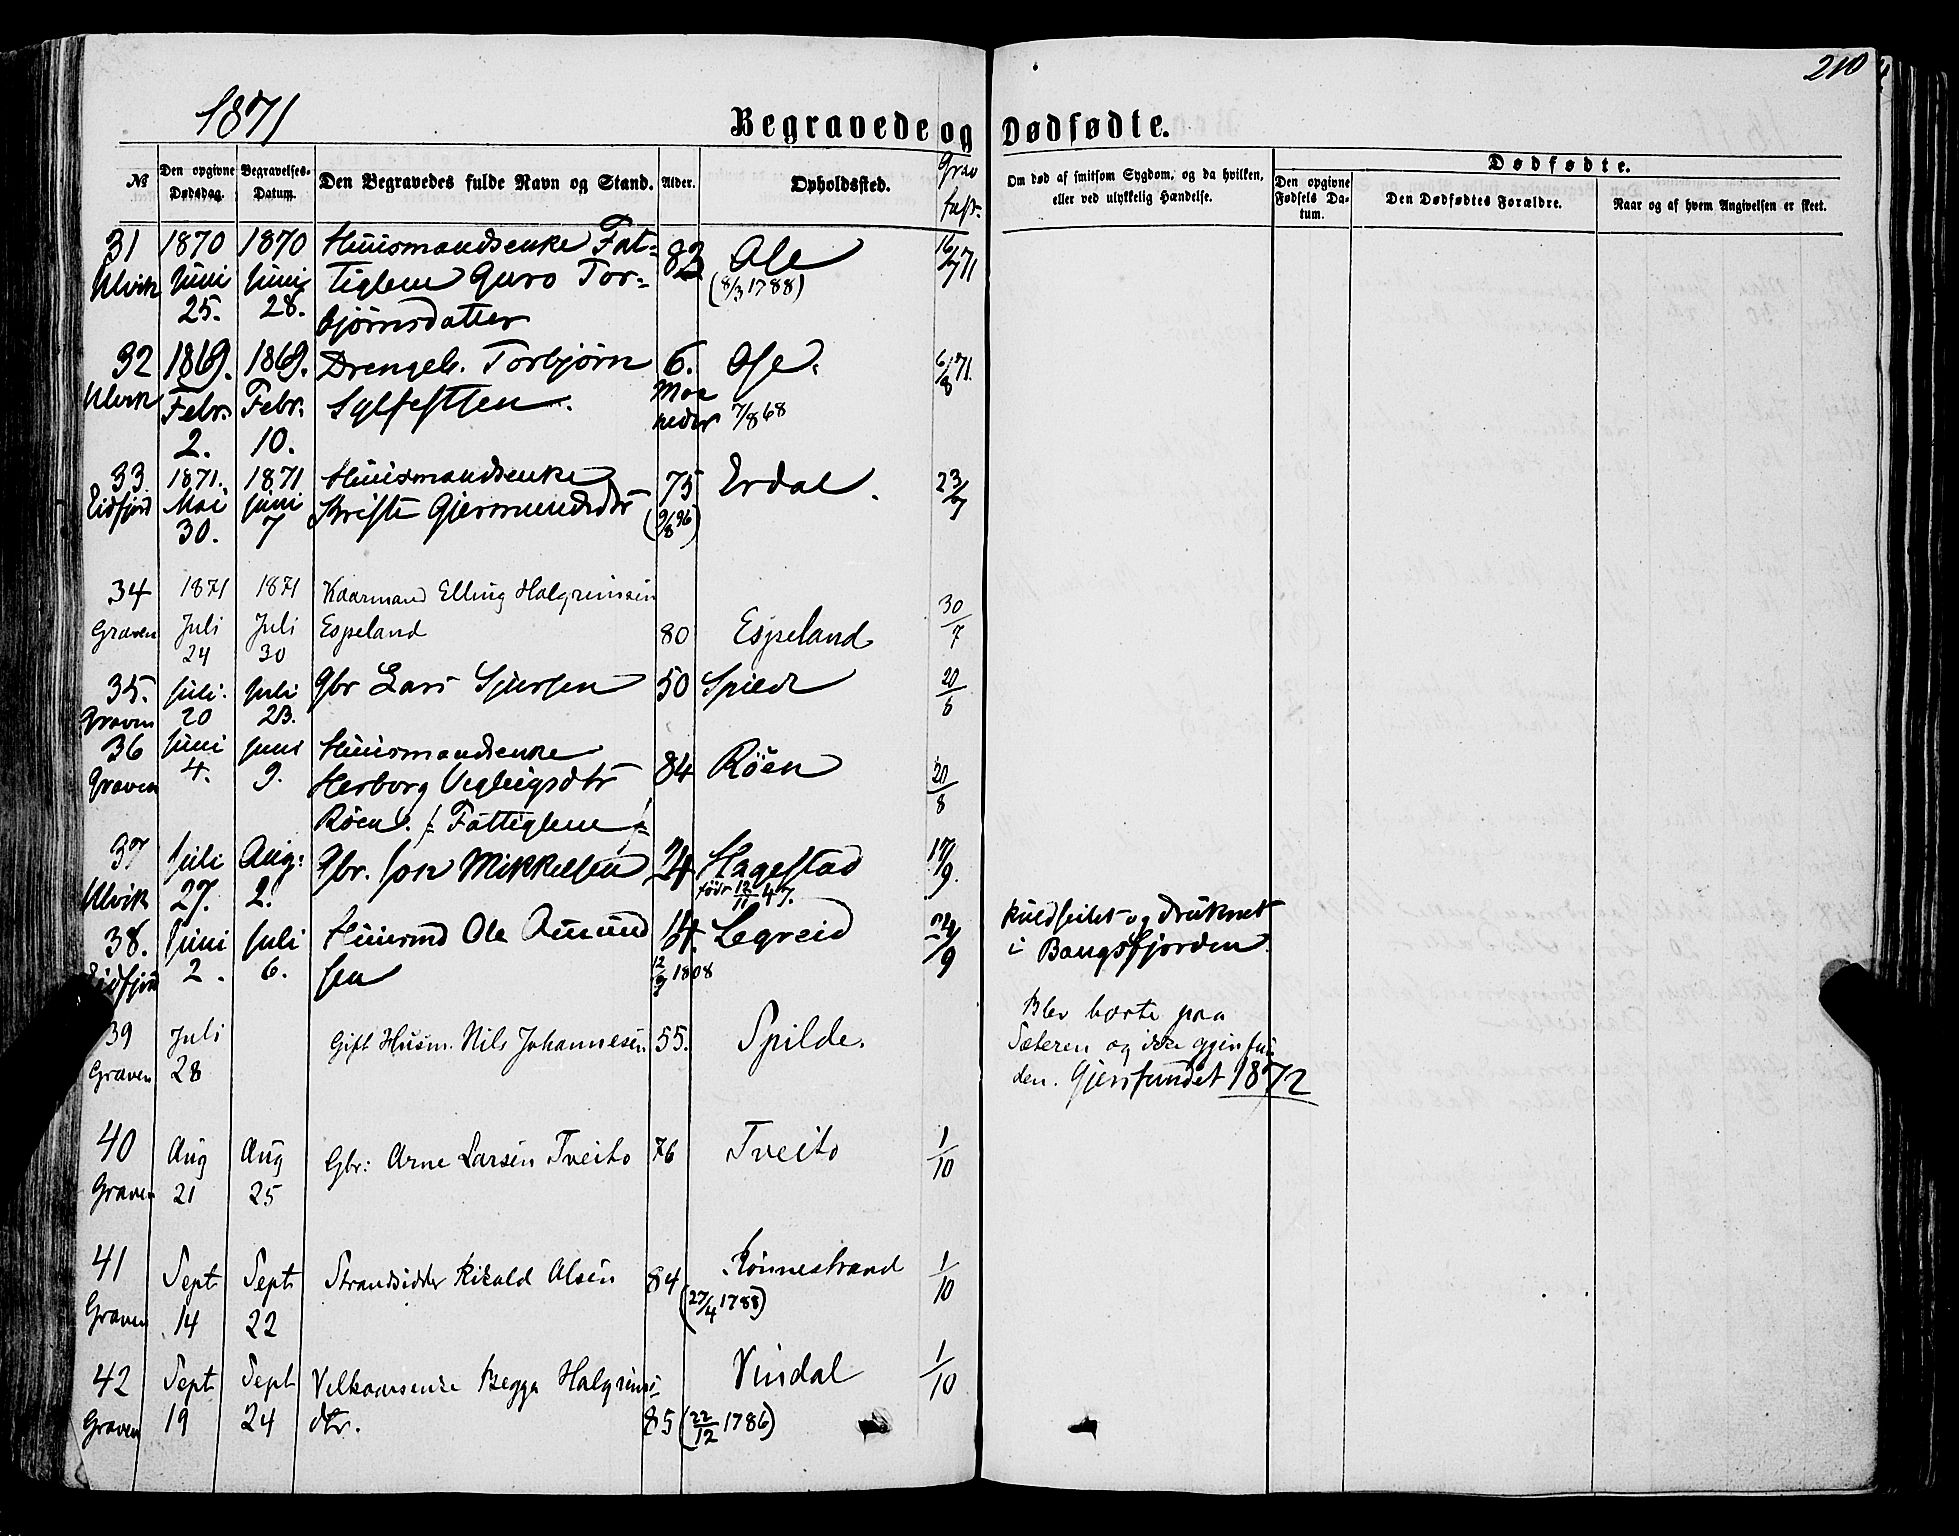 210
1871
Begravede og Dødfødte.
№
Den opgivne Dødsdag.
Begravelses-Datum.
Den Begravedes fulde Navn og Stand.
Alder.
Opholdssted.
Grav fæst.
Om død af smitsom Sygdom, og da hvilken, eller ved ulykkelig Hændelse.
Dødfødte.
Den opgivne Fødsels Datum.
Den Dødfødtes Forældre.
Naar og af hvem Angivelsen er skeet.
31 1870 1870 Huusmandsenke Fat- 83 Ose 16/7 71
Ulvik Juni Juni tiglem Guro Tor- (8/3 1788)
25. 28. bjørnsdatter
32 1869. 1869. Drengeb. Torbjørn 6. Ose. 6/8 71.
Ulvik Febr. Febr. Sylfestsen. Maa
2. 10. neder 7/8 68
33 1871. 1871 Huusmandsenke 75 Erdal. 23/7
Eidfjord Mai Juni Kristi Gjermundsdtr (9/8 96)
30. 7
34 1871 1871 Kaarmand Elling Halgrimsen 30/7
Graven Juli Juli Espeland 80 Espeland
24 30
35. Juli. Juli Gbr Lars Sjursen 50 Spilde 20/8
Graven 20 23.
36 Juni Juni Huusmandsenke
Graven 4. 9. Herborg Vigleigsdtr 84 Røen 20/8
Røen. /: Fattiglem :/
37 Juli Aug: Gbr. Jon Mikkelsen 24 Hagestad 17/9.
Ulvik 27. 2. født 12/11 47.
38. Juni Juli Huusmd Ole Amund 14. Legreid 24/9 kuldseilet og druknet
Eidfjord 2. 6. sen 12/9 1808 i Bangsfjorden.
39 Juli Gift Husm. Nils Johannesen 55. Spilde. Blev borte paa
Graven 28 Sæteren og ikke gjenfun
den. Gjenfundet 1872
40 Aug Aug Gbr: Arne Larsen Tveito 76 Tveito 1/10
Graven 21 25
41 Sept Sept Strandsidder Rikald Olsen 84 Rønnestrand 1/10
Graven 14 22 (27/4 1788)
42 Sept Sept Velkaarsenke Begga Halgrims- Vindal 1/10
Graven 19 24 dtr. 85 (22/12 1786)